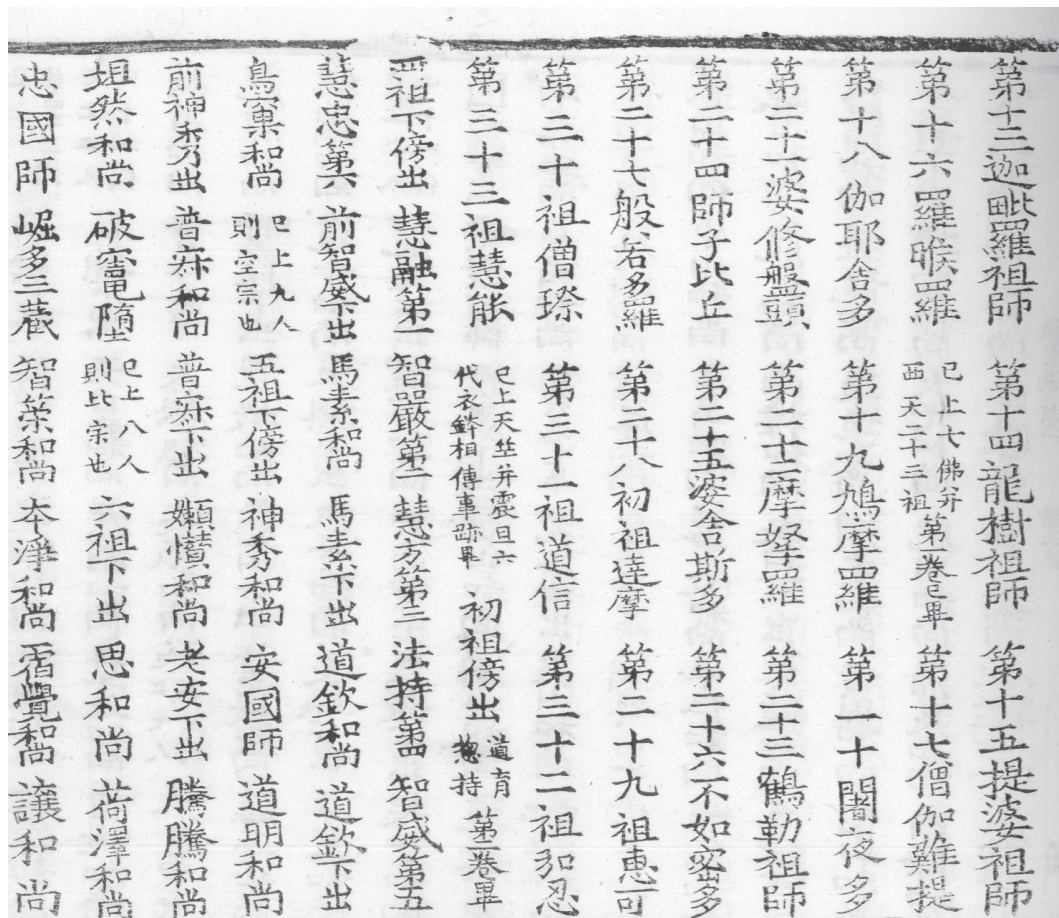 第十三迦毗羅祖師 第十四龍樹祖師 第十五提婆祖師
第十六羅睺羅 已上七佛并西天二十三祖 第一卷已畢 第十七僧伽難提
第十八伽耶舍多 第十九鳩摩羅 第二十闍夜多
第二十一婆修盤頭 第二十二摩拏羅 第二十三鶴勒祖師
第二十四師子比丘 第二十五婆舍斯多 第二十六不如密多
第二十七般若多羅 第二十八初祖達摩 第二十九祖惠可
第三十祖僧璨 第三十一祖道信 第三十二祖弘忍
第三十三祖慧能 已上天竺并震旦六代衣鉢相傳事跡畢 初祖傍出 道育 揔持 第二卷畢
四祖下傍出 慧融第一 智嚴第二 慧方第三 法持第四 智威第五
慧忠第六 前智威下出 馬素和尚 馬素下出 道欽和尚 道欽下出
鳥窠和尚 已上九人則空宗也 五祖下傍出 神秀和尚 安國師 道明和尚
前神秀出 普寂和尚 普寂下出 嬾懶和尚 老安下出 騰騰和尚
坦然和尚 破竈墮 已上八人則北宗也 六祖下出 思和尚 荷澤和尚
忠國師 崛多三藏 智策和尚 本淨和尚 宿覺和尚 讓和尚